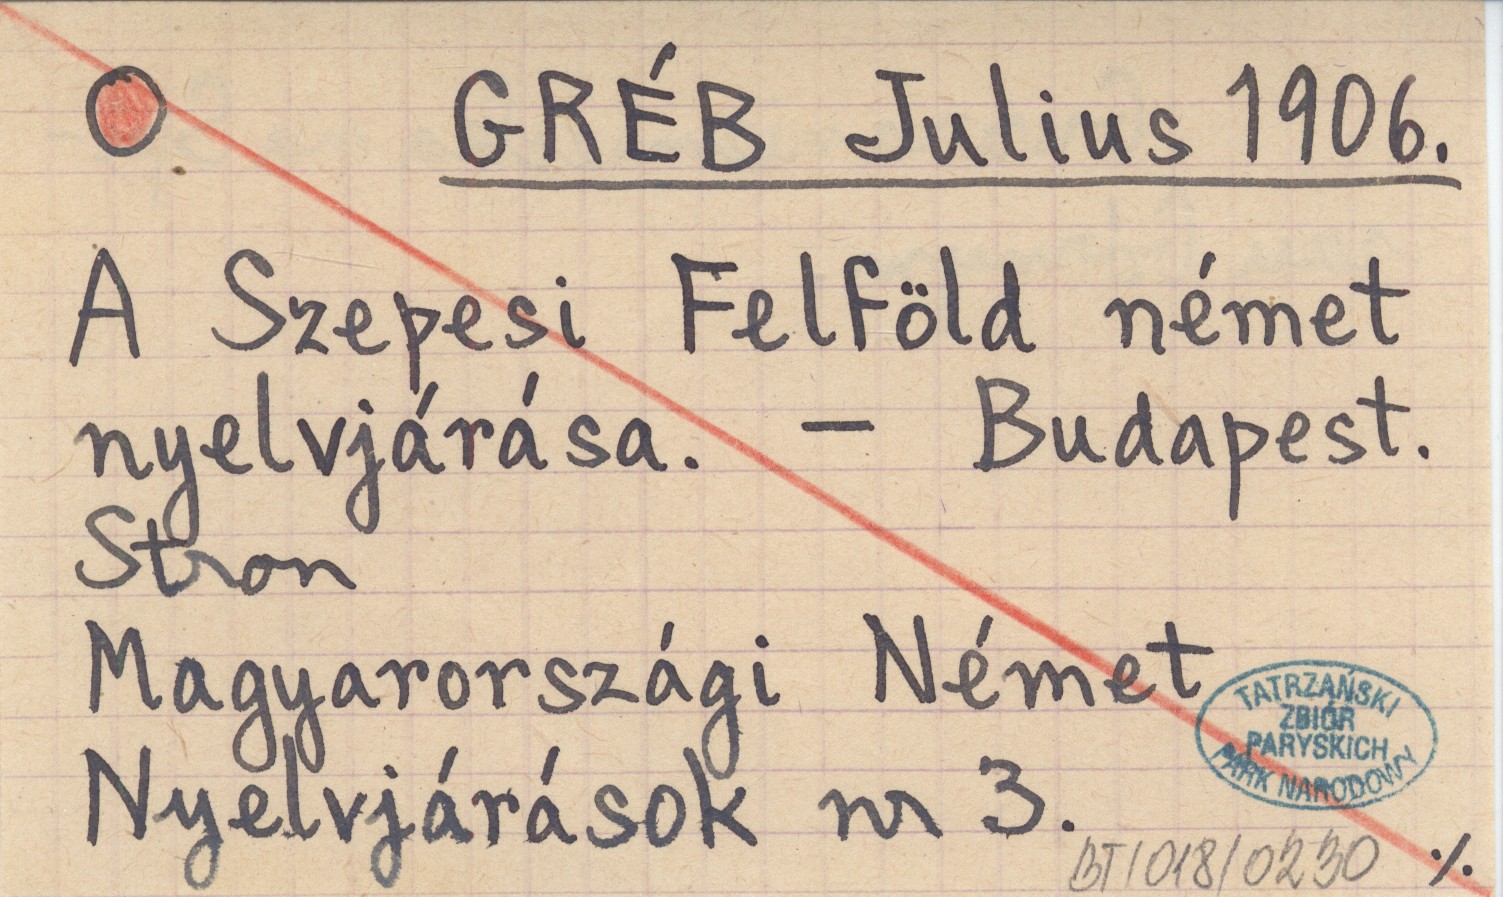 GRÉB Julius 1906.
A Szepesi Felföld német
nyelvjárása. – Budapest.
Stron
Magyarországi Német
Nyelvjárások nr 3.
TATRZAŃSKI
ZBIÓR
PARYSKICH
PARK NARODOWY
BT/018/0230
./.